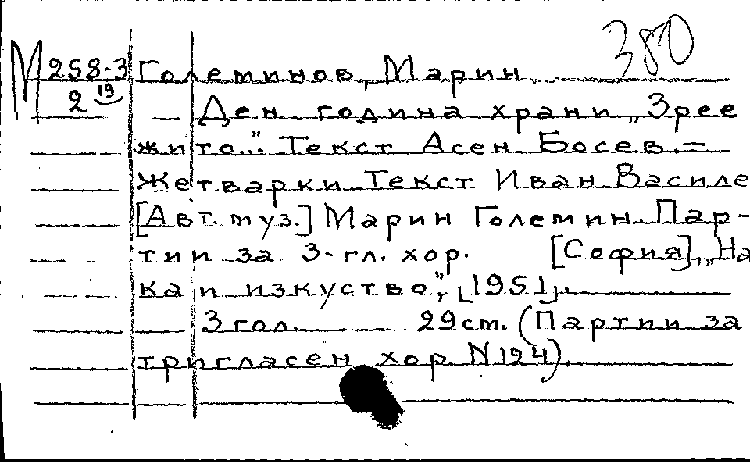 380
М 258-3 Големинов, Марин
2 19 Ден година храни „Зрее
жито“. Текст Асен Босев.–
Жетварки. Текст Иван Василе
[Авт. муз.] Марин Големин. Пар-
тии за 3-гл. хор. [София], „На
ка и изкуство“, [1951].
3 гол. 29 см. (Партии за
тригласен хор N 124).